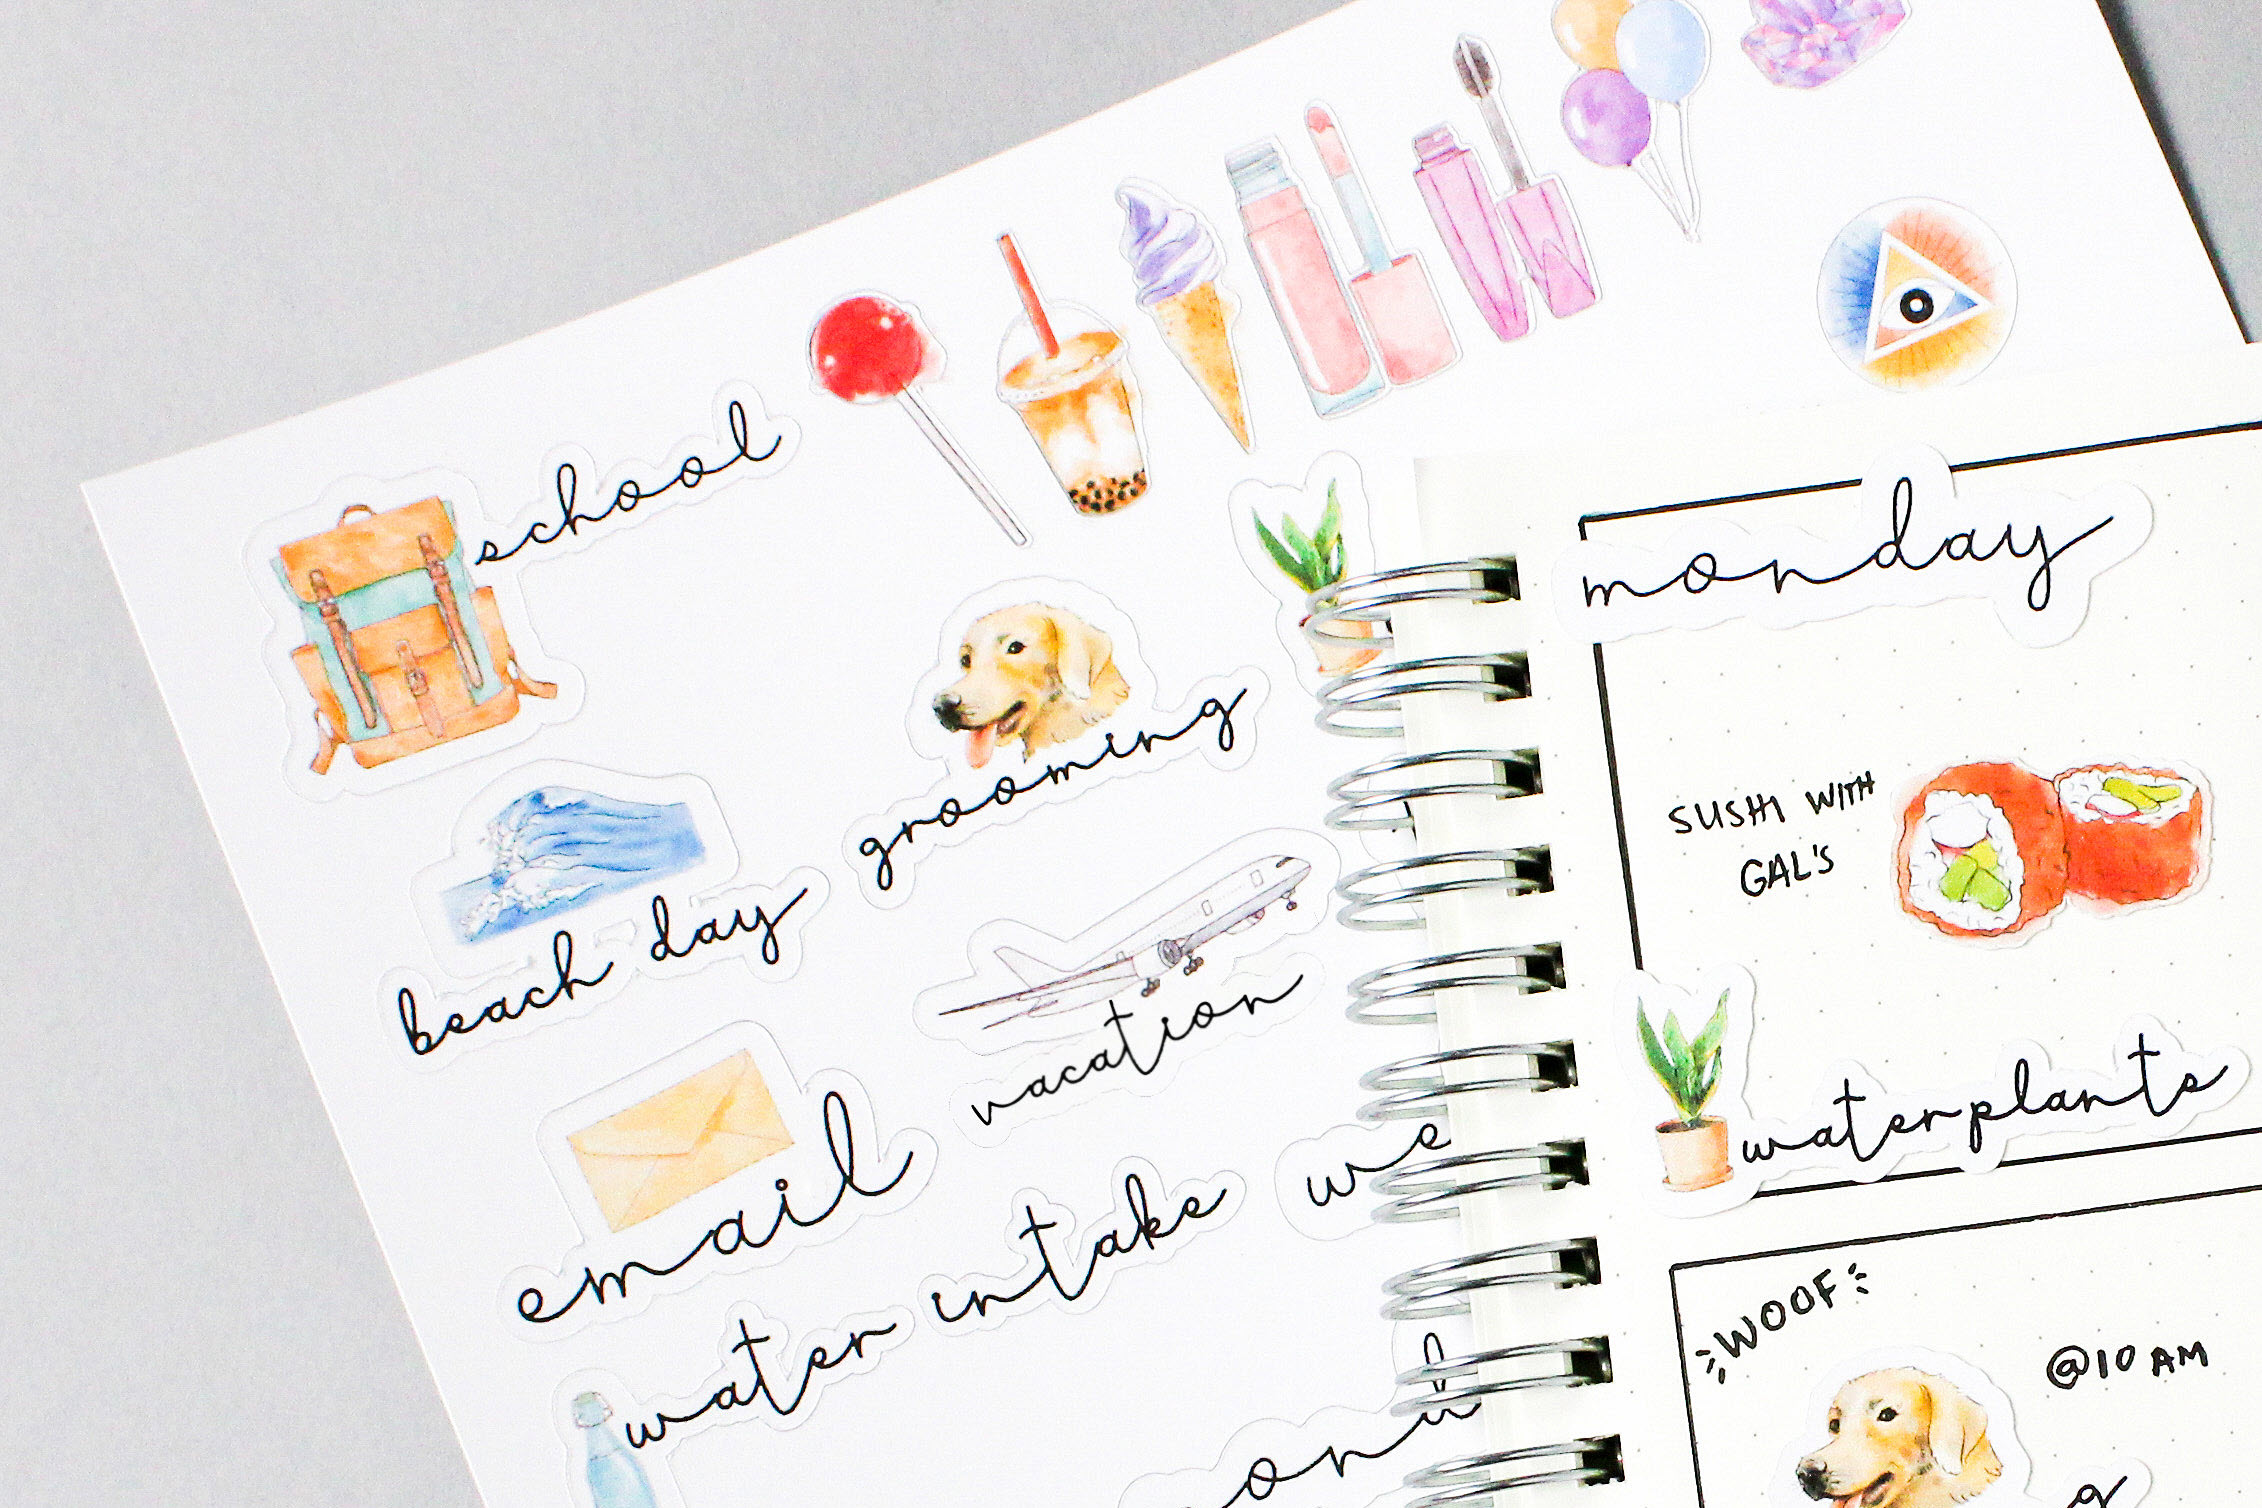 school
grooming
beach day
vacation
email
water intake
we
monday
SUSHI WITH
GAL'S
waterplants
WOOF
@10 AM